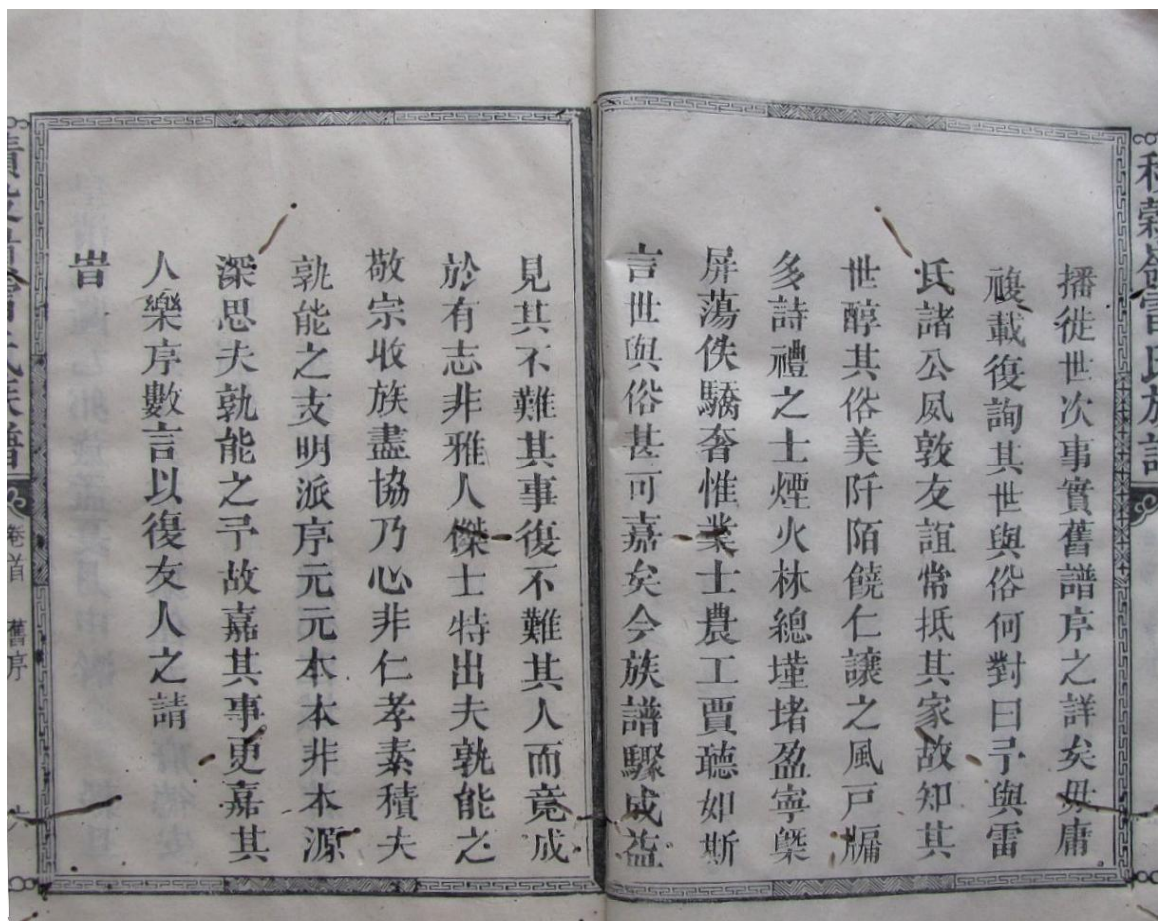 播徙世次事實舊譜序之詳矣毋庸
複載復詢其世與俗何對曰予與雷
氏諸公夙敦友誼常抵其家故知其
世醇其俗美阡陌饒仁讓之風戸牖
多詩禮之士煙火林總墐堵盈寧槩
屏蕩佚驕奢惟業士農工賈聴如斯
言世與俗甚可嘉矣今族譜驟成益
見其不難其事復不難其人而竟成
於有志非雅人傑士特出夫孰能之
敬宗收族盡協乃心非仁孝素積夫
孰能之支明派序元元本本非本源
深思夫孰能之予故嘉其事更嘉其
人樂序數言以復友人之請
旹
氏族譜
卷首
舊序